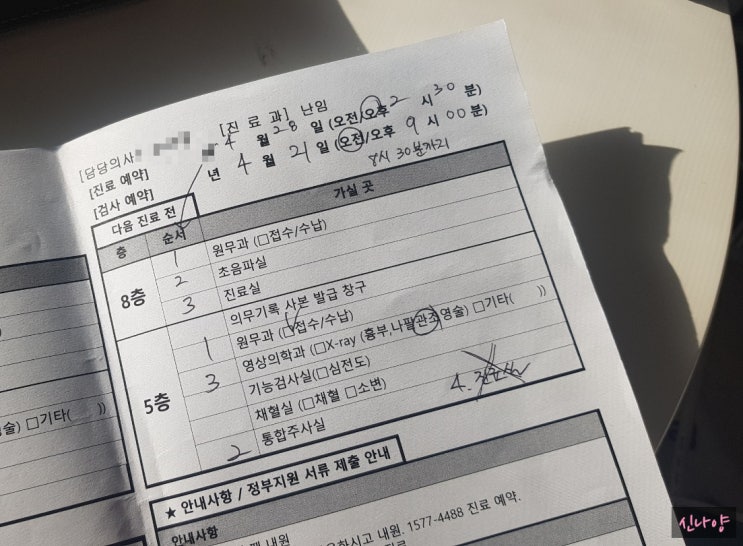 [진료과] 난임
[담당의사
[진료 예약] 4 월 28 일 (오전/오후 2 시 30 분)
[검사 예약] 년 4 월 21 일 (오전/오후 9 시 00 분)
8시 30분까지
다음 진료 전
층 순서 가실 곳
8층
1 원무과 (□접수/수납)
2 초음파실
3 진료실
의무기록 사본 발급 창구
5층
1 원무과 (□접수/수납)
3 영상의학과 (□X-ray (흉부,나팔관조영술) □기타( ))
기능검사실(□심전도)
채혈실 (□채혈 □소변)
2 통합주사실
4.
★ 안내사항 / 정부지원 서류 제출 안내
안내사항
내원
하시고 내원. 1577-4488 진료 예약.
술) □기타( ))
신나양